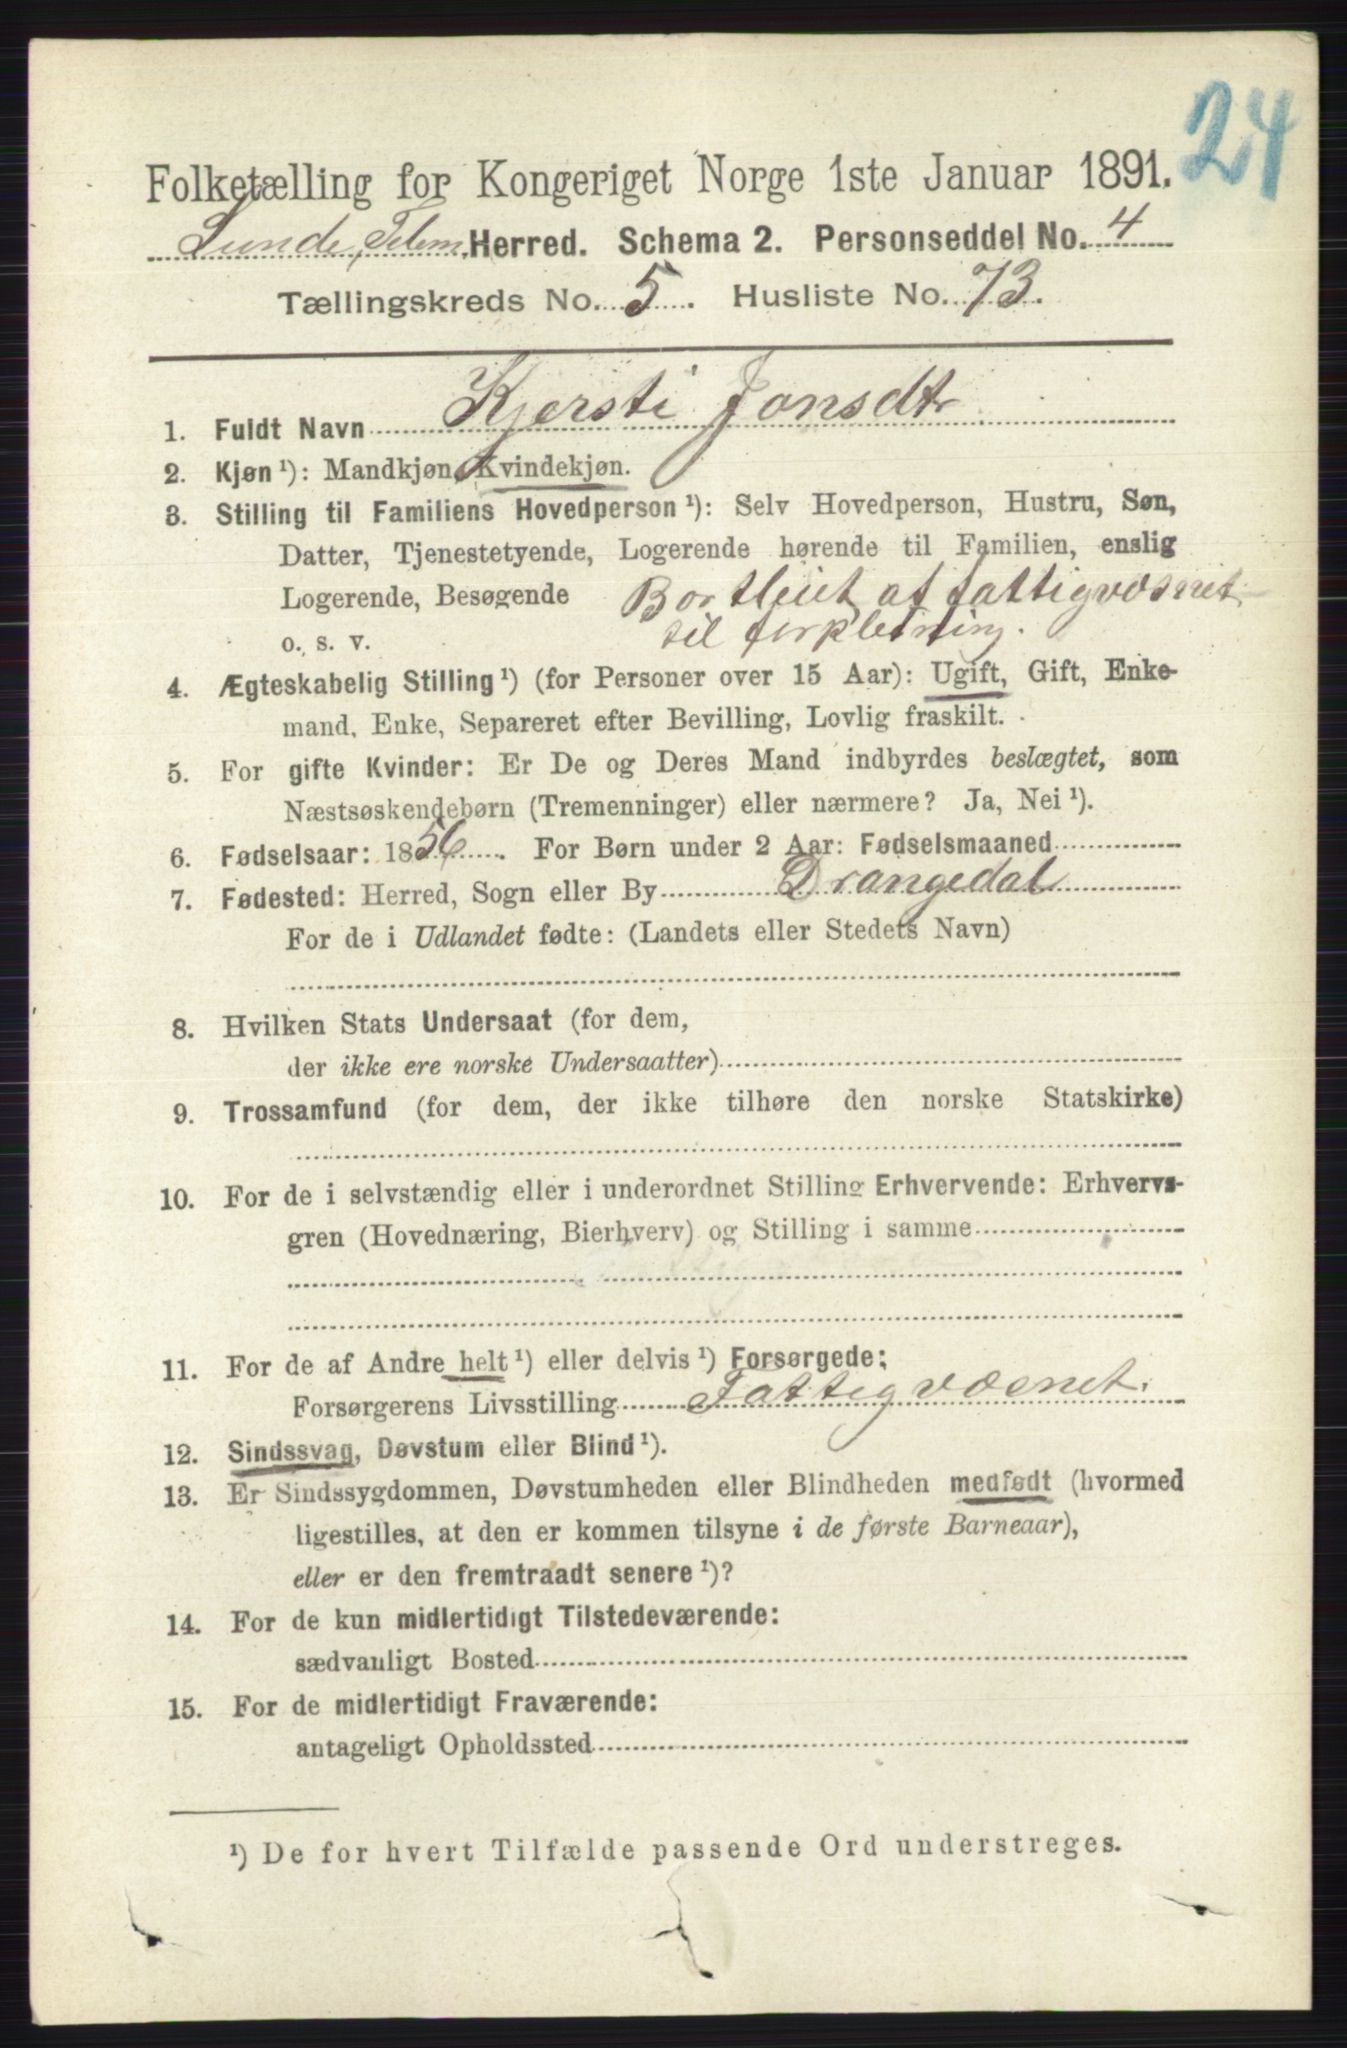 24
Folketælling for Kongeriget Norge 1ste Januar 1891.
Lunde, Telem. Herred. Schema 2. Personseddel No. 4
Tællingskreds No. 5. Husliste No. 73.
1. Fuldt Navn Kjersti Jonsdtr
2. Kjøn ¹): Mandkjøn, Kvindekjøn.
3. Stilling til Familiens Hovedperson ¹): Selv Hovedperson, Hustru, Søn,
Datter, Tjenestetyende, Logerende hørende til Familien, enslig
Logerende, Besøgende Bortleiet af fattigvæsnet
o. s. v. til forpleining.
4. Ægteskabelig Stilling ¹) (for Personer over 15 Aar): Ugift, Gift, Enke-
mand, Enke, Separeret efter Bevilling, Lovlig fraskilt.
5. For gifte Kvinder: Er De og Deres Mand indbyrdes beslægtet, som
Næstsøskendebørn (Tremenninger) eller nærmere? Ja, Nei ¹).
6. Fødselsaar: 1856. For Børn under 2 Aar: Fødselsmaaned
7. Fødested: Herred, Sogn eller By Drangedal
For de i Udlandet fødte: (Landets eller Stedets Navn)
8. Hvilken Stats Undersaat (for dem,
der ikke ere norske Undersaatter)
9. Trossamfund (for dem, der ikke tilhøre den norske Statskirke)
10. For de i selvstændig eller i underordnet Stilling Erhvervende: Erhvervs-
gren (Hovednæring, Bierhverv) og Stilling i samme
11. For de af Andre helt ¹) eller delvis ¹) Forsørgede:
Forsørgerens Livsstilling Fattigvæsnet.
12. Sindssvag, Døvstum eller Blind ¹).
13. Er Sindssygdommen, Døvstumheden eller Blindheden medfødt (hvormed
ligestilles, at den er kommen tilsyne i de første Barneaar),
eller er den fremtraadt senere ¹)?
14. For de kun midlertidigt Tilstedeværende:
sædvanligt Bosted
15. For de midlertidigt Fraværende:
antageligt Opholdssted
¹) De for hvert Tilfælde passende Ord understreges.